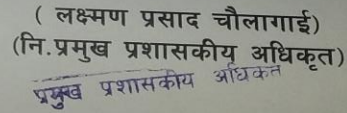 ( लक्ष्मण प्रसाद चौलागाई)
(नि.प्रमुख प्रशासकीय अधिकृत)
प्रमुख प्रशासकीय अधिकृत